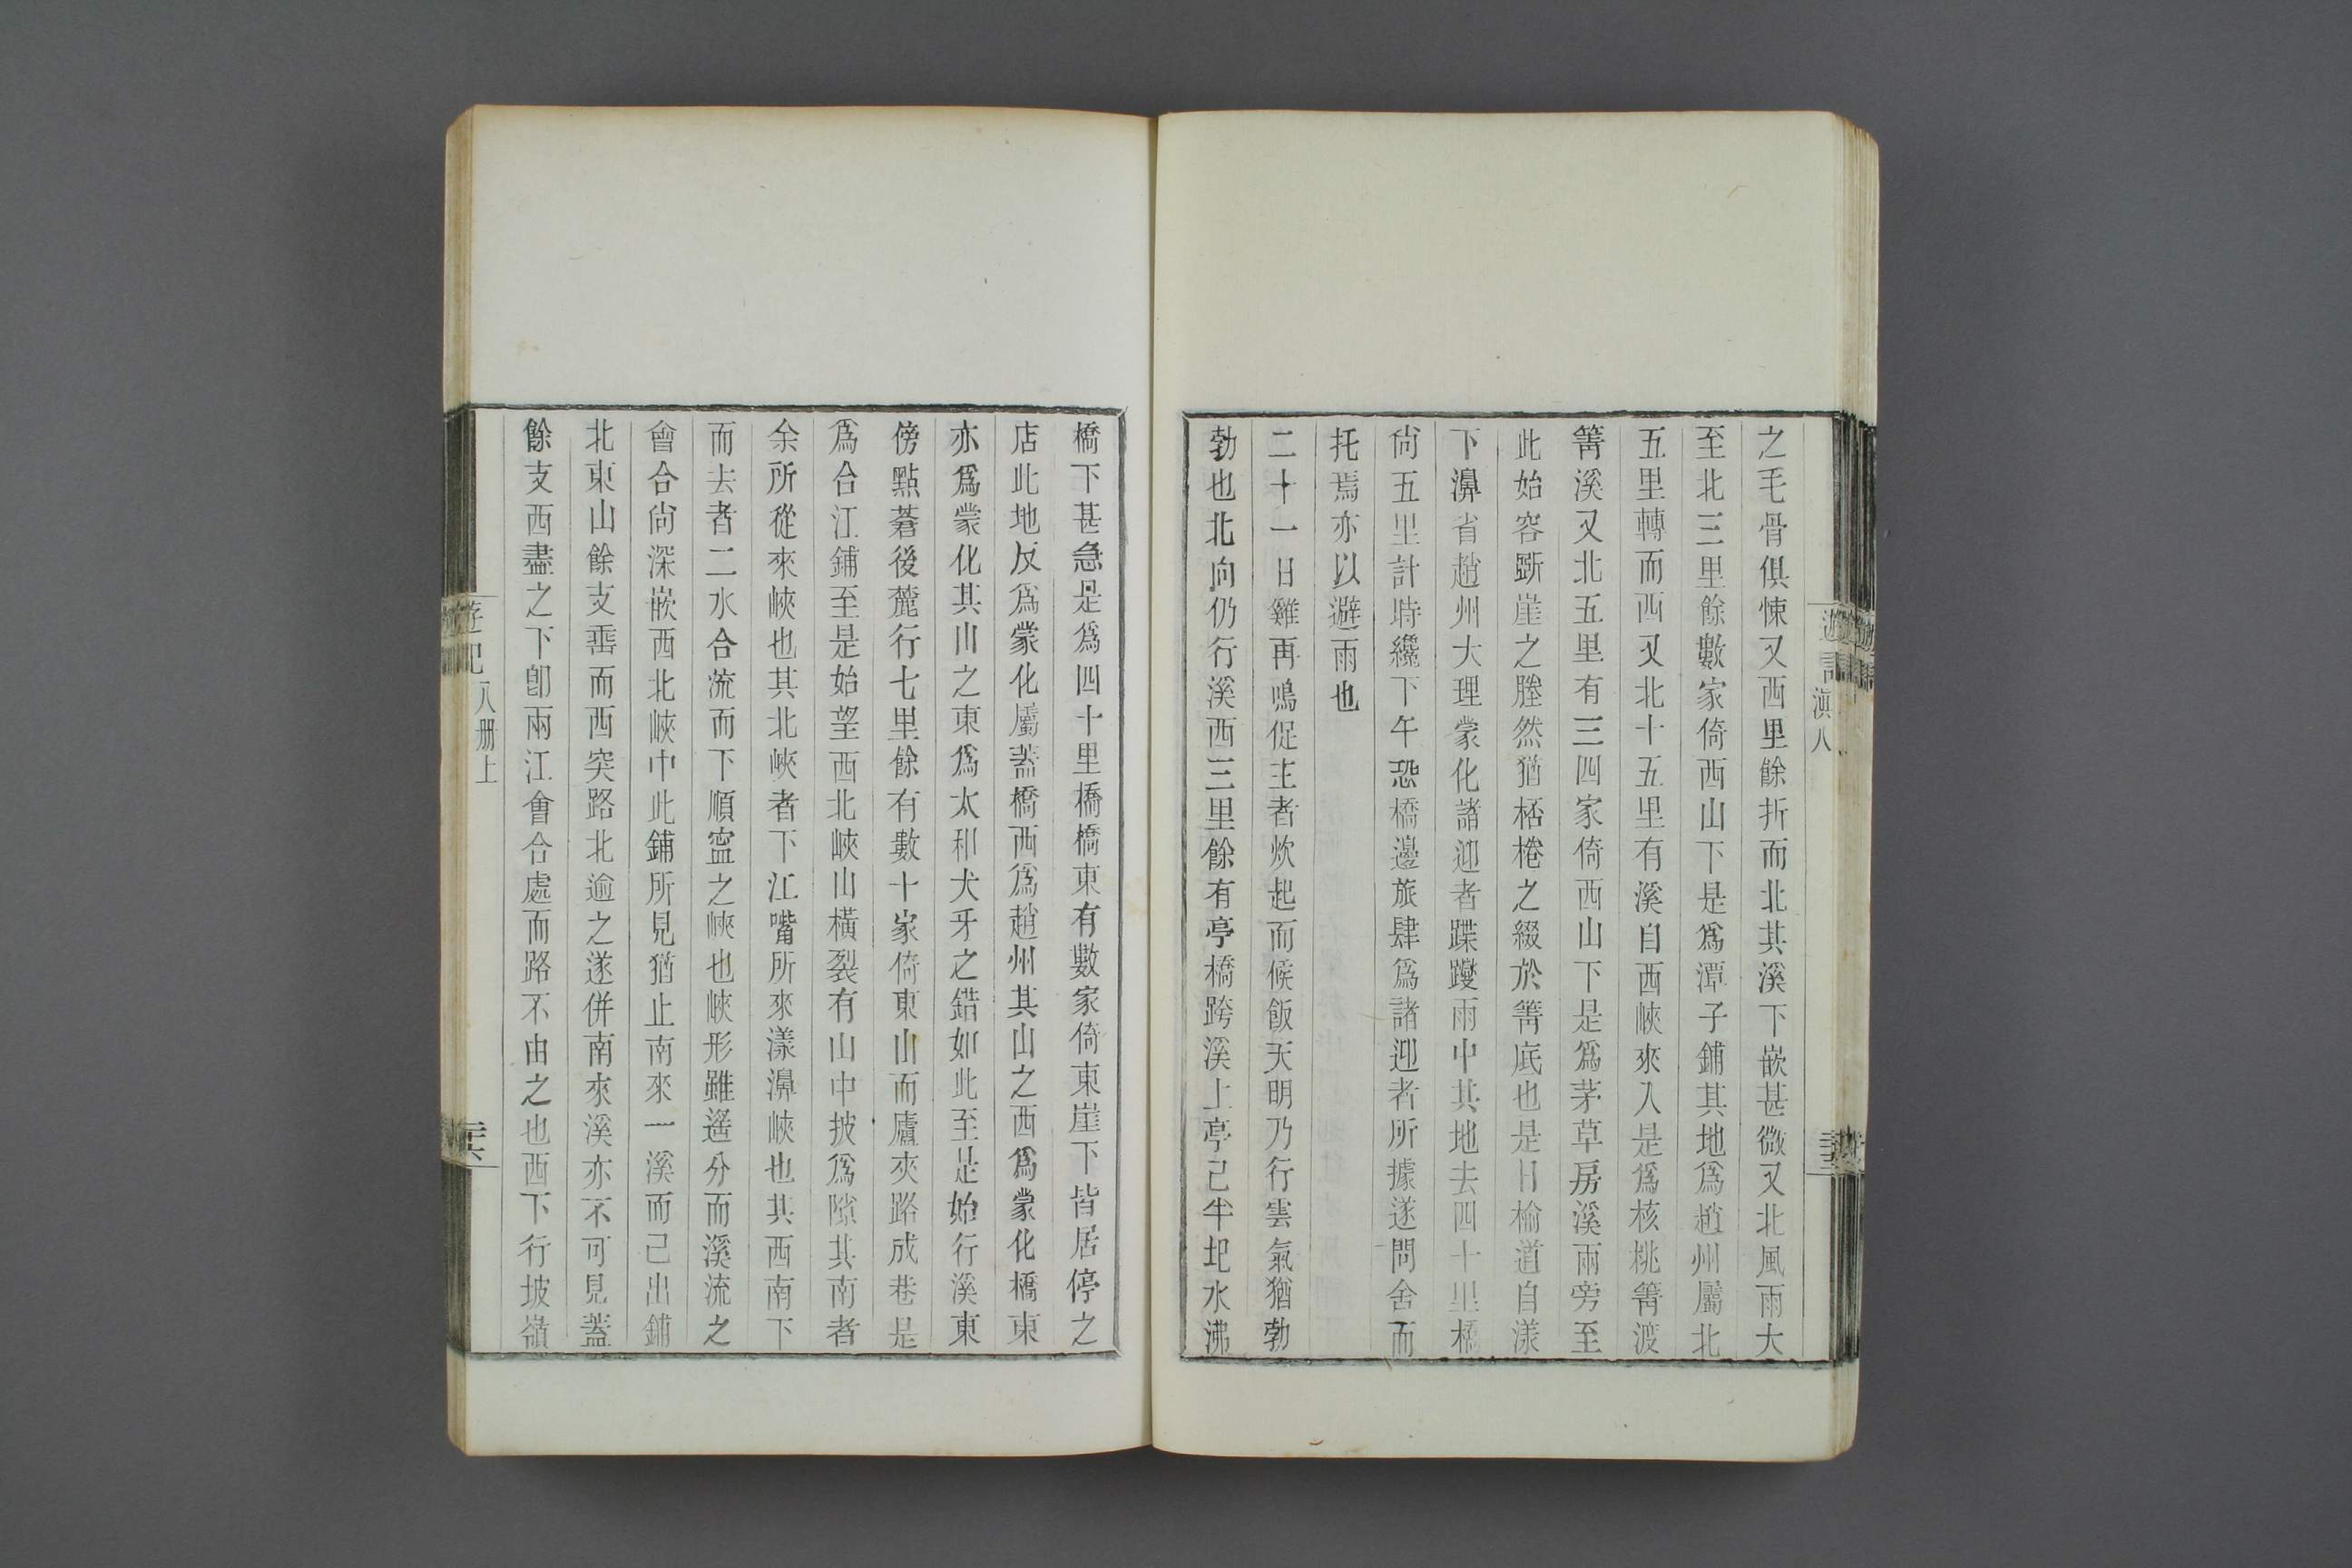 遊記 滇八
之毛骨俱悚又西里餘折而北其溪下嵌甚微又北風雨大
至北三里餘數家倚西山下是爲潭子鋪其地爲趙州屬北
五里轉而西又北十五里有溪自西峽來入是爲核桃箐渡
箐溪又北五里有三四家倚西山下是爲茅草房溪兩旁至
此始容斲崖之塍然猶桮棬之綴於箐底也是日榆道自漾
下濞省趙州大理蒙化諸迎者蹀躞雨中其地去四十里橋
尙五里計時纔下午恐橋邊旅肆爲諸迎者所據遂問舍而
托焉亦以避雨也
二十一日雞再鳴促主者炊起而候飯天明乃行雲氣猶勃
勃也北向仍行溪西三里餘有亭橋跨溪上亭已半圮水沸
橋下甚急是爲四十里橋橋東有數家倚東崖下皆居停之
店此地反爲蒙化屬蓋橋西爲趙州其山之西爲蒙化橋東
亦爲蒙化其山之東爲太和犬牙之錯如此至是始行溪東
傍點蒼後麓行七里餘有數十家倚東山而廬夾路成巷是
爲合江鋪至是始望西北峽山橫裂有山中披爲隙其南者
余所從來峽也其北峽者下江嘴所來漾濞峽也其西南下
而去者二水合流而下順寧之峽也峽形雖遙分而溪流之
會合尙深嵌西北峽中此鋪所見猶止南來一溪而已出鋪
北東山餘支垂而西突路北逾之遂併南來溪亦不可見蓋
餘支西盡之下卽兩江會合處而路不由之也西下行坡嶺
遊記 八册上